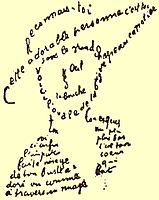 Reconnais-toi
Cette adorable personne c'est toi
Sous le grand chapeau canotier
Œil
Nez
la bouche
Voici l'ovale de ta figure
Ton cou exquis
Voi
ci enfin
l'impar
faite image
de ton buste a
doré vu comme
à travers un nuage
un peu
plus bas
c'est ton
coeur
qui
bat